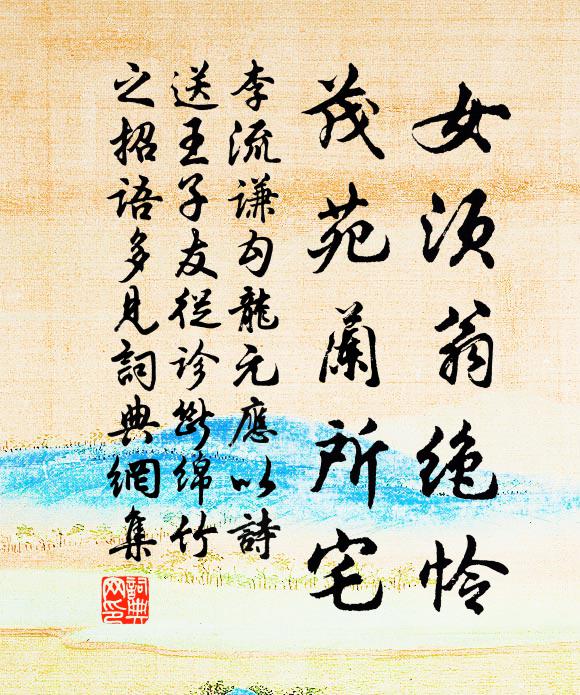 女須翁絕怜
茂苑蘭所宅
李流谦勾龍元應以詩
送王子友從诊斷綿竹
之招語多見詞典網集
詞典网印